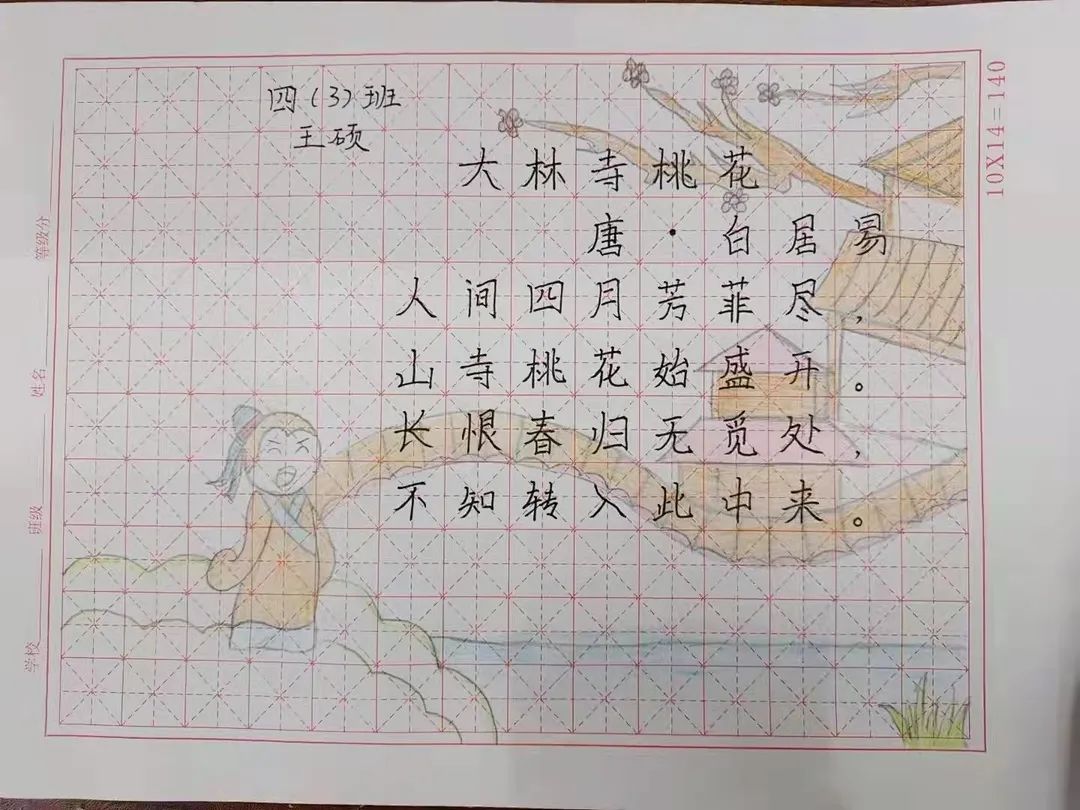 四(3)班
王硕
大林寺桃花
唐·白居易
人间四月芳菲尽，
山寺桃花始盛开。
长恨春归无觅处，
不知转入此中来。
10X14=140
等级分
姓名
班级
学校